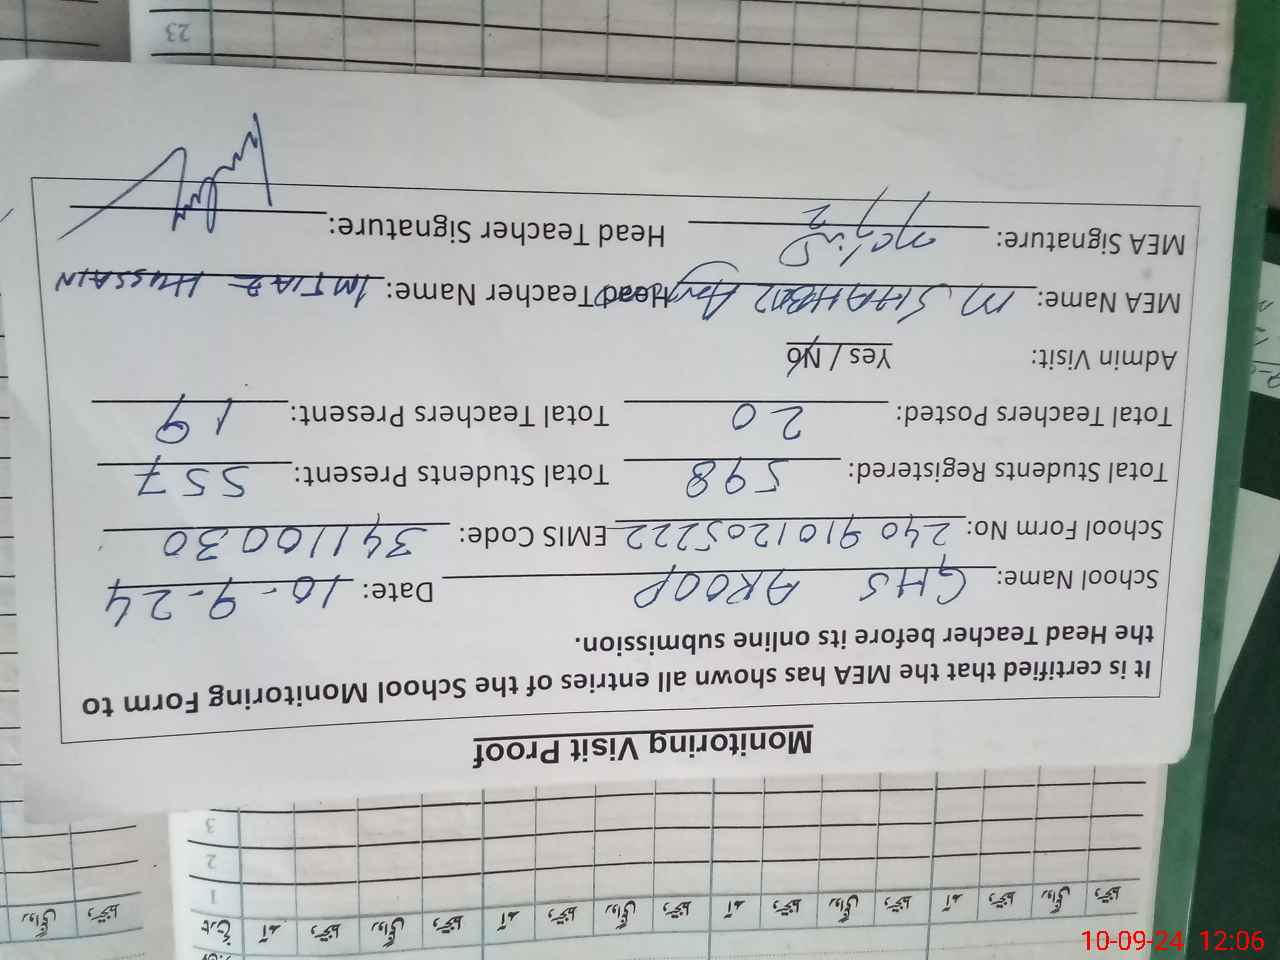 Monitoring Visit Proof
It is certified that the MEA has shown all entries of the School Monitoring Form to
the Head Teacher before its online submission.
School Name: GHS AROOP Date: 10-9-24
School Form No: 2409101205222 EMIS Code: 34110030
Total Students Registered: 598 Total Students Present: 557
Total Teachers Posted: 20 Total Teachers Present: 19
Admin Visit: Yes / No
MEA Name: M. SHAHBAZ Head Teacher Name: IMTIAZ HUSSAIN
MEA Signature: Head Teacher Signature:
23
تاریخ آمد دستخط روانگی دستخط آمد دستخط روانگی دستخط آمد دستخط روانگی دستخط آمد دستخط روانگی دستخط
1
2
3
روانگی دستخط
10-09-24 12:06